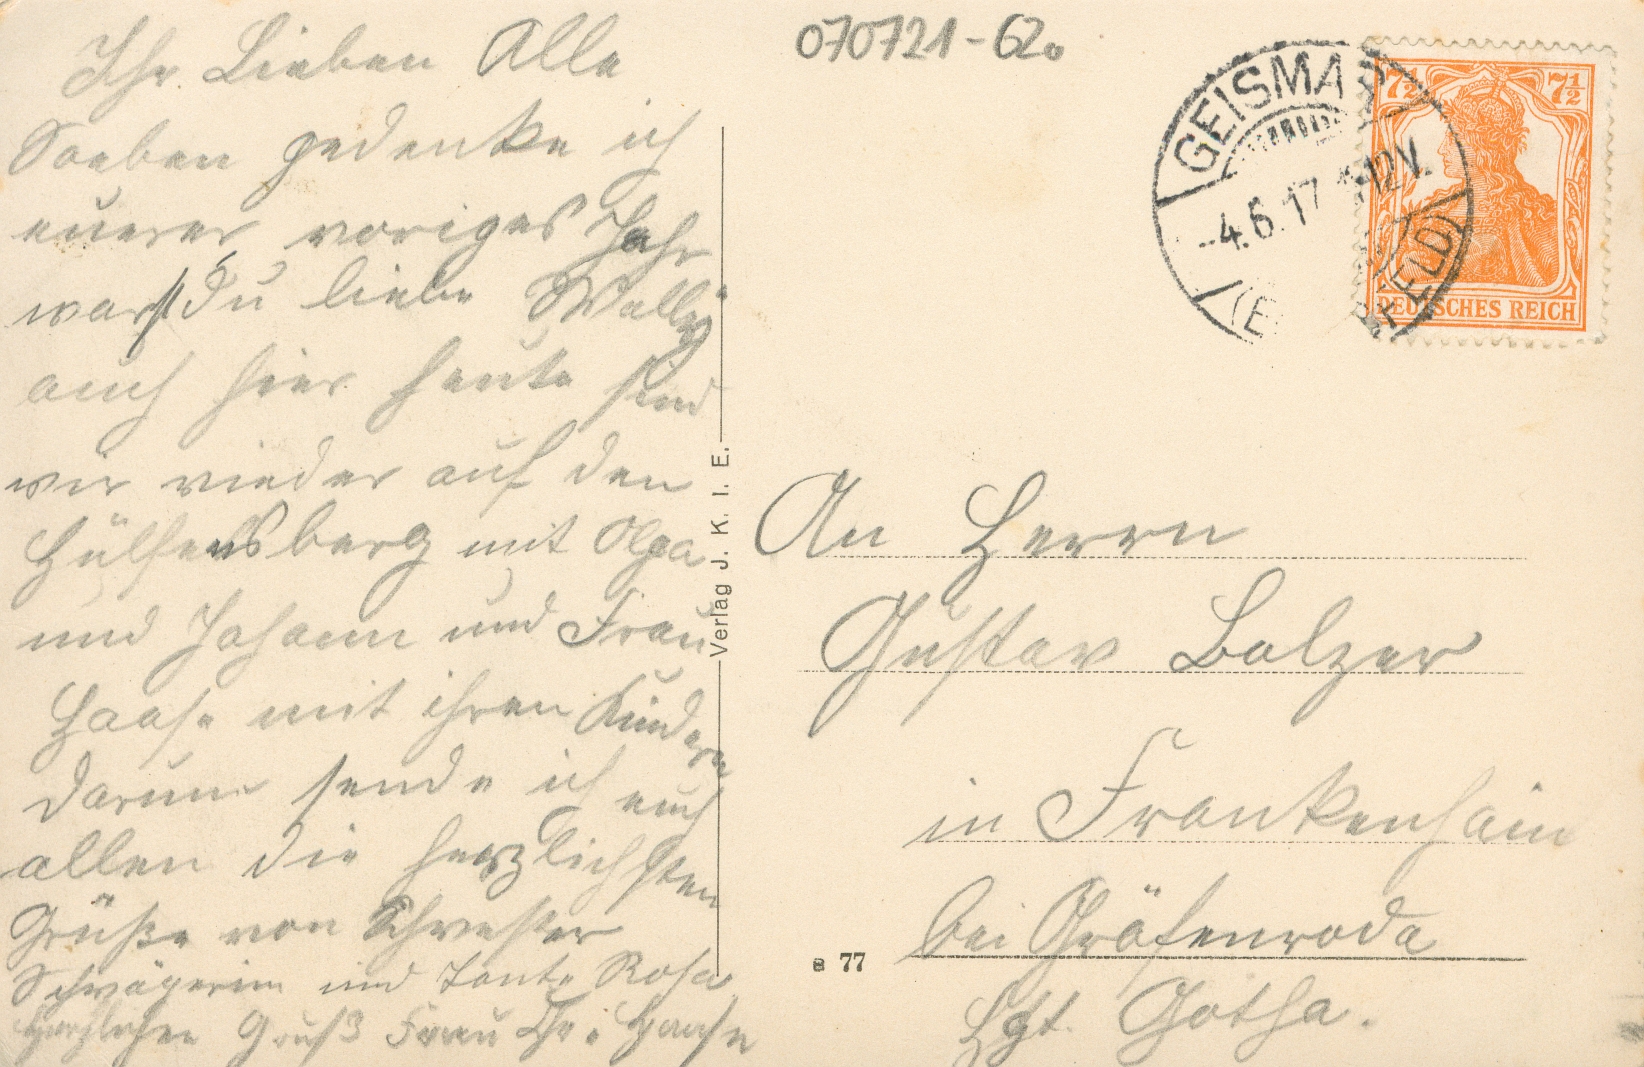 Ihr Lieben Alle
Soeben gedenke ich
eurer voriges Jahr
warst du liebe Wally
auch hier heute sind
wir wieder auf den
Hülfensberg mit Olga
und Johann und Frau
Haase mit ihren Kindern
darum sende ich euch
allen die herzlichsten
Grüße von Schwester
Schwägerin und Tante Rosa
Herzlichen Gruß Frau Chr. Haase
070721-62.
GEISMAR
-4.6.17 *-12V.
(E FELD)
7½ 7½
DEUTSCHES REICH
Verlag J. K. I. E.
An Herrn
Gustav Balzer
in Frankenhain
bei Gräfenroda
Hgt. Gotha.
77